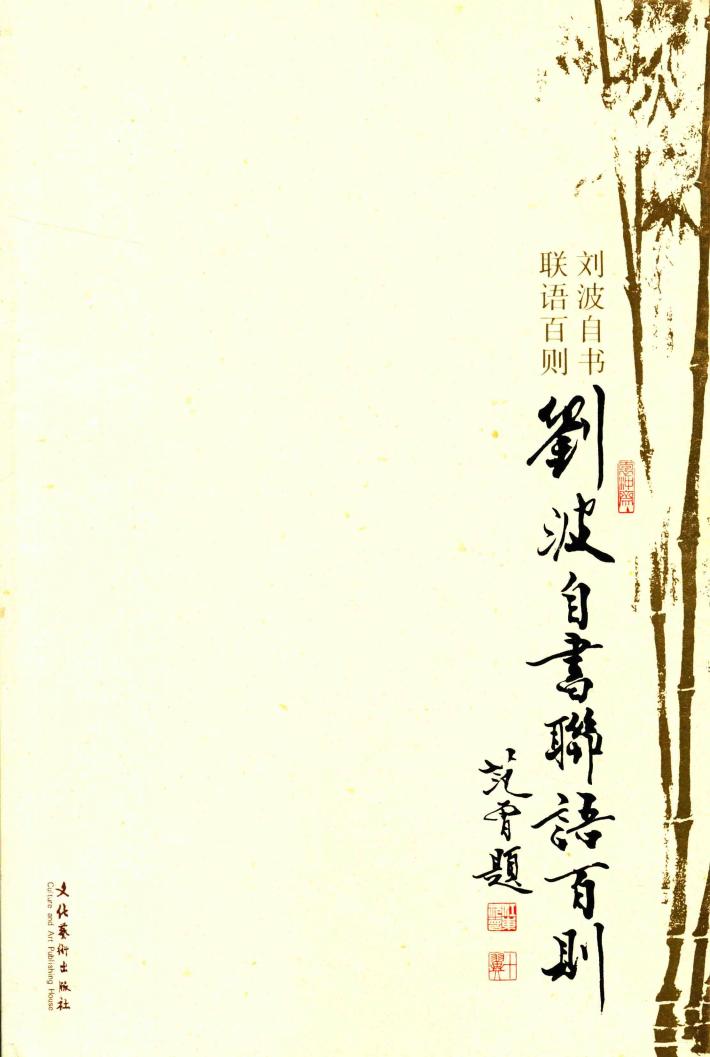 刘波自书
联语百则
劉波自書聯語百則
范曾題
文化藝術出版社
Culture and Art Publishing House